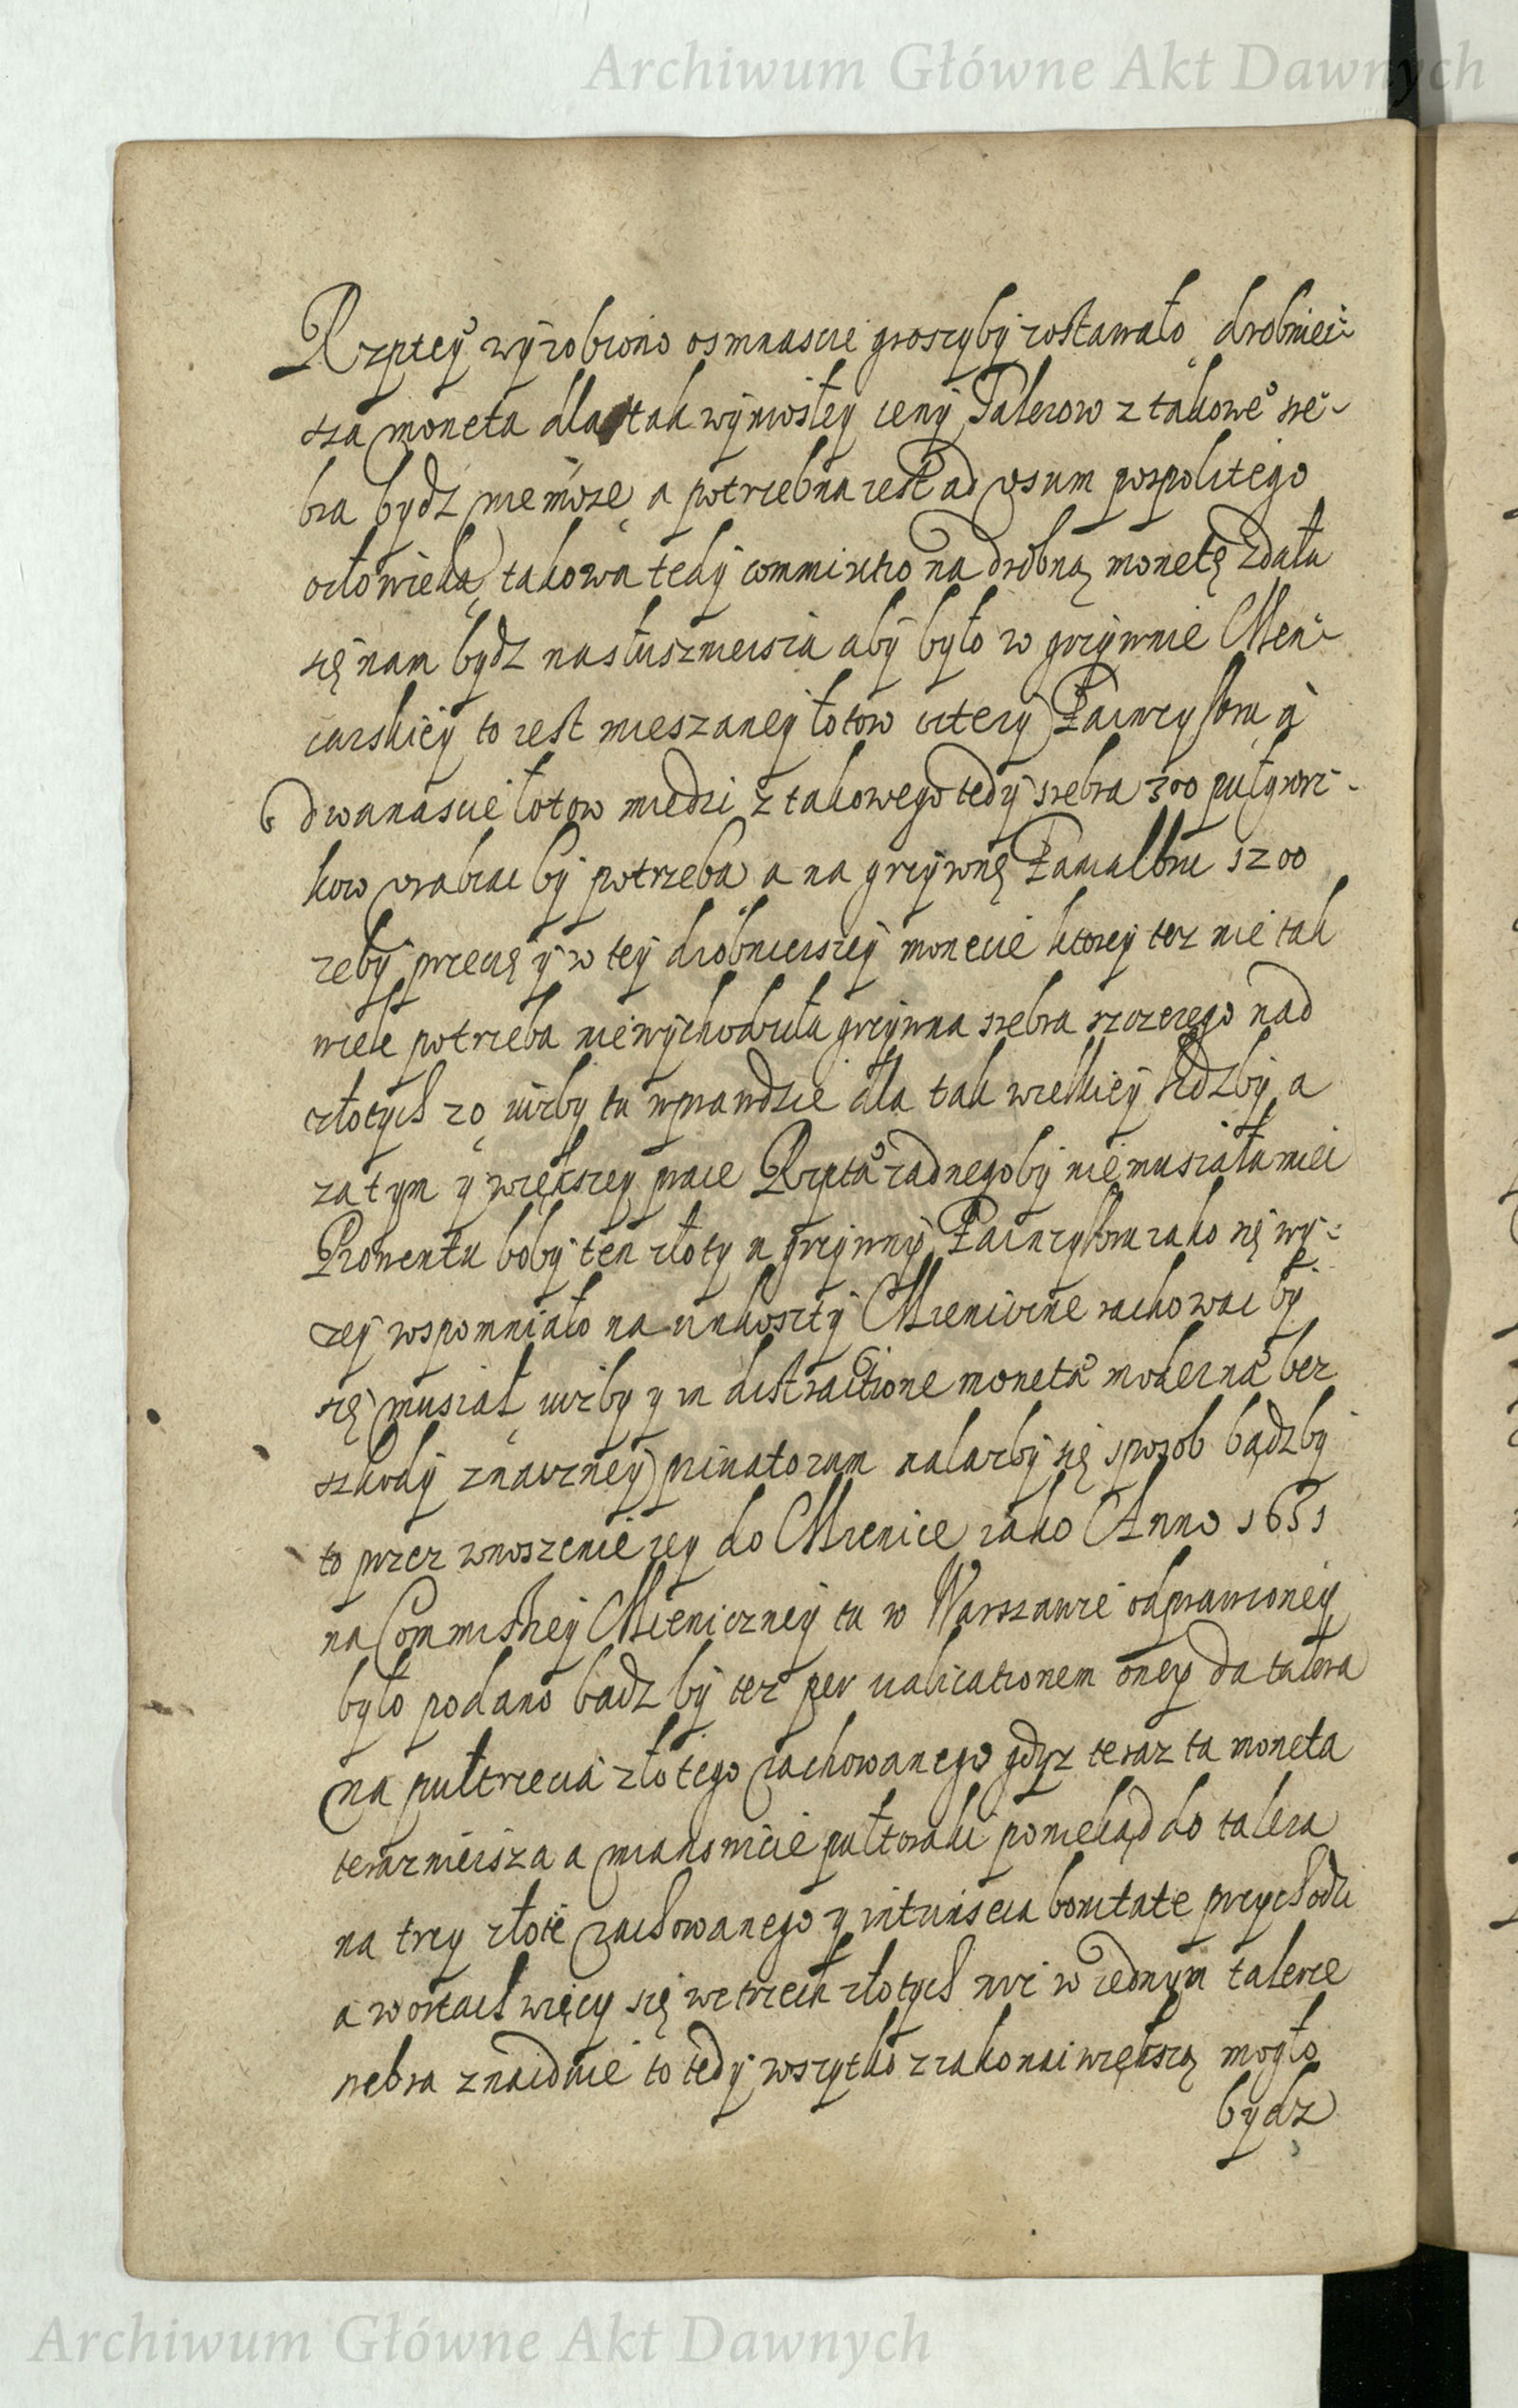 Archiwum Główne Akt Dawnych
Rzptey wyrobiono osmnascie groszyby zostawało drobniei-
sza moneta dla tak wyniosłey ceny Talerow z takowe sre-
bra bydz niemoze a potrzebna iest ad usum pospolitego
człowieka takowa tedy commixtio na drobną monetę zdała
się nam bydz nasłusznieisza aby było w grzywnie Men-
carskiey to iest mieszaney łotow cztery
dwanascie łotow miedzi z takowego tedy srebra 300 pułgrosz-
kow urabiac by potrzeba a na grzywnę 1200
zeby przecię y w tey drobnieiszey monecie ktorey tez nie tak
wiele potrzeba niewychodziła grzywna srebra szczerego nad
złotych 20 iuzby tu wprawdzie dla tak wielkiey liczby a
zatym y większey prace Rzpta zadnegoby niemusiała miec
Prowentu boby ten złoty u grzywny iako się wy-
zey wspomniało na unkoszty Mieniczne rachowac by
się musiał iuzby y in distractione moneta moderna bez
szkody znaczney priuatorum nalazby się sposob bądzby
to przez wnoszenie iey do Mienice iako Anno 1651
na Commissiey Mieniczney tu w Warszawie odprawioney
było podano bądz by tez per ualuationem oney da talera
na pułtrzecia złotego rachowanego gdyz teraz ta moneta
teraznieisza a mianowicie pułtoraki poniekąd do talera
na trzy złote rachowanego y intrinseca bonitate przychodzi
a w ortach więcy się we trzech złotych niz w iednym talerze
srebra znaiduie to tedy wszytko z iako naiwiększą mogło
bydz
Archiwum Główne Akt Dawnych